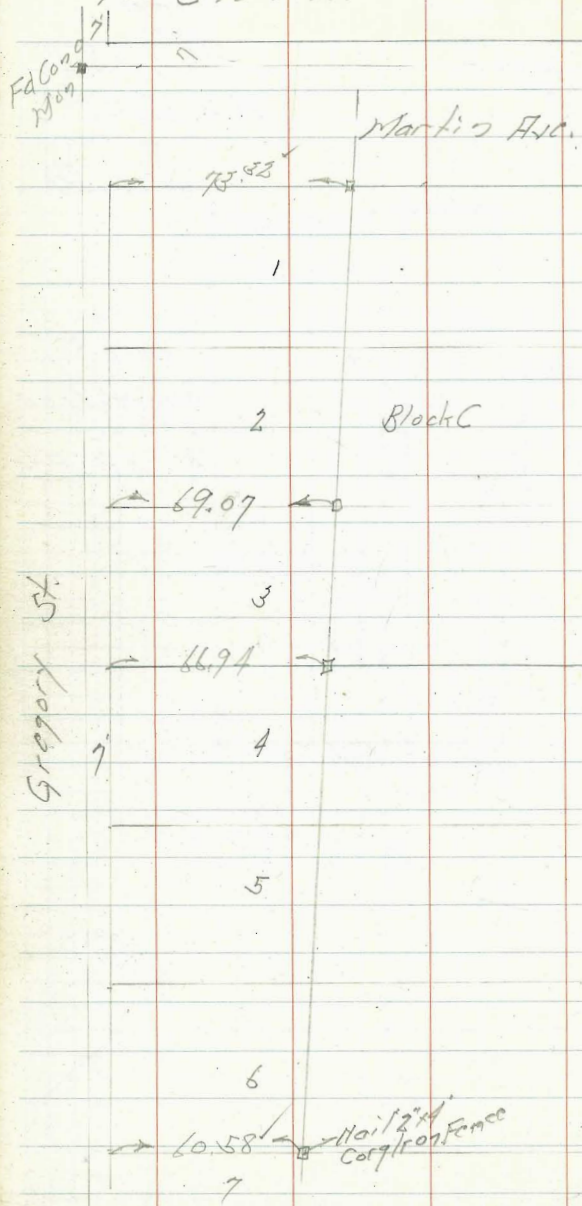 7'
Fd Conc
Mon
Martin Ave.
73.32
1
2
Block C
69.07
3
66.94
Gregory St.
7'
4
5
6
60.58
Nail 2"x4"
Corg Iron Fence
7